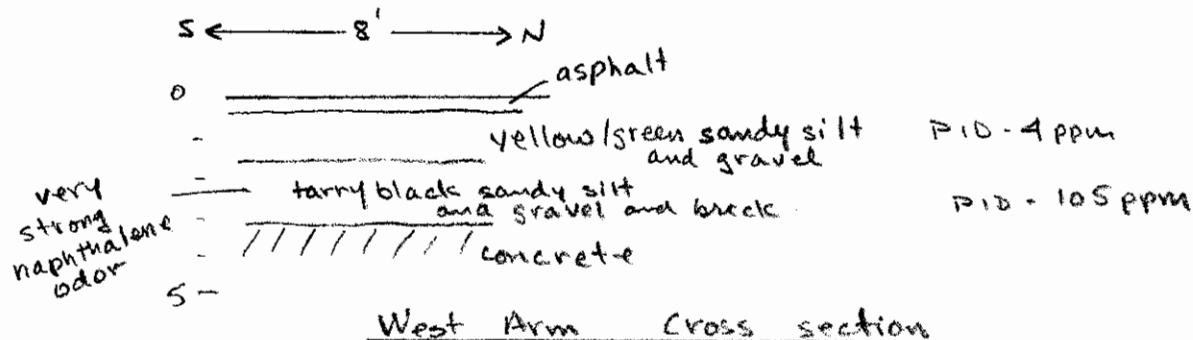 S 8' N
asphalt
0
yellow/green sandy silt PID - 4 ppm
and gravel
very
strong
naphthalene
odor
tarry black sandy silt
and gravel and brick. PID - 105 ppm
concrete
5 -
West Arm Cross section